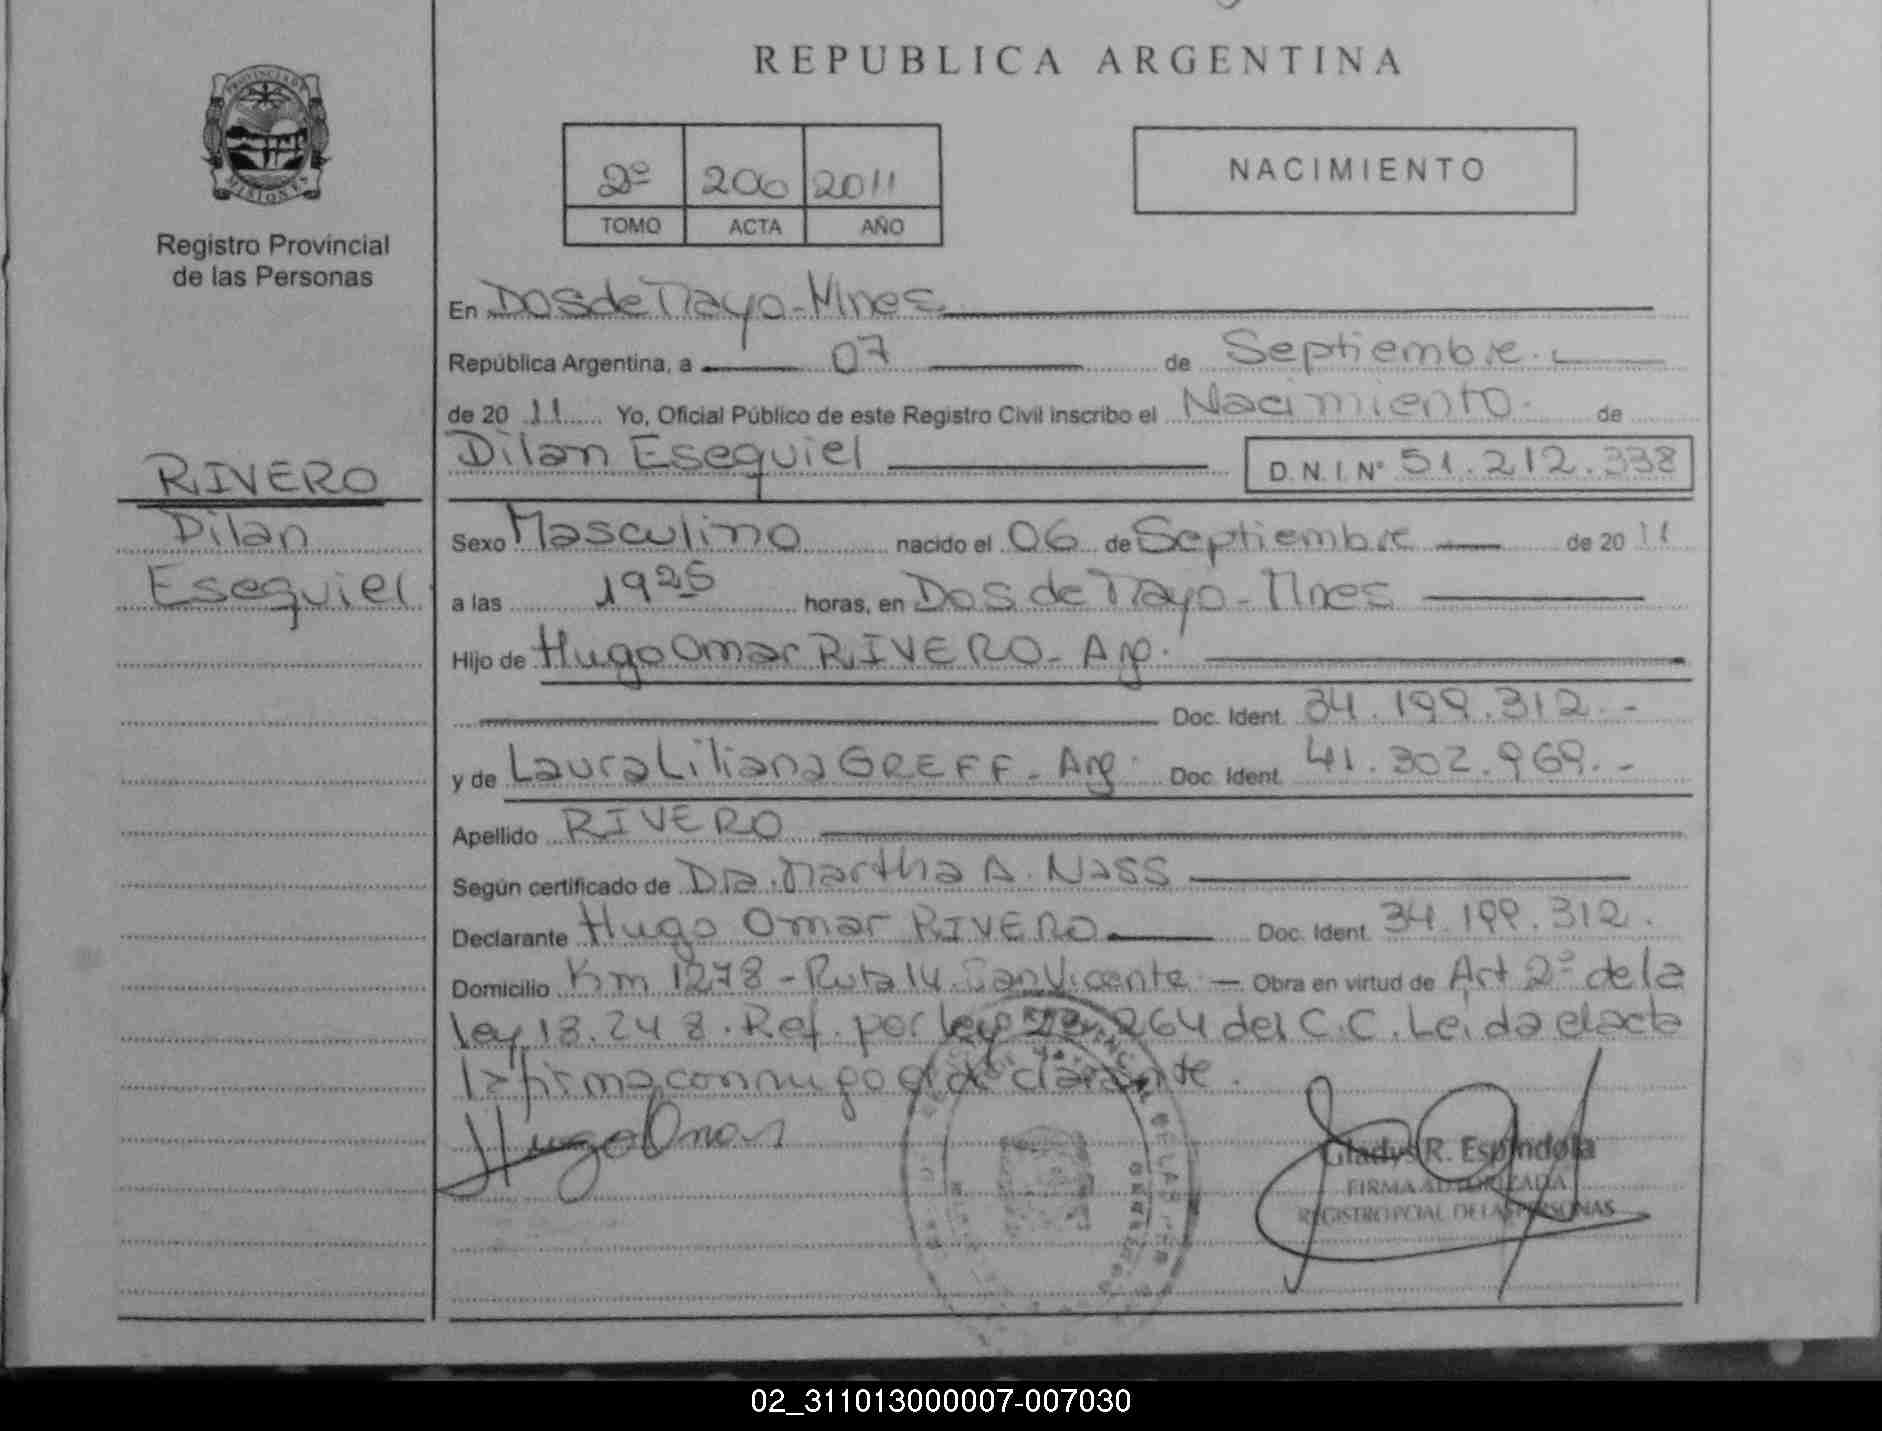 REPUBLICA ARGENTINA
PROVINCIA DE MISIONES
Registro Provincial
de las Personas
2º 206 2011
TOMO ACTA AÑO
NACIMIENTO
En Dos de Mayo - Mnes
República Argentina, a 07 de Septiembre.
de 2011 Yo, Oficial Público de este Registro Civil inscribo el Nacimiento de
Dilan Esequiel D. N. I. Nº 51.212.338
RIVERO
Dilan
Esequiel
Sexo Masculino nacido el 06 de Septiembre de 2011
a las 1925 horas, en Dos de Mayo - Mnes
Hijo de Hugo Omar RIVERO - Arg.
Doc. Ident. 34.199.312.-
y de Laura Liliana GREFF - Arg. Doc. Ident. 41.302.969.-
Apellido RIVERO
Según certificado de Dra. Martha A. Nass
Declarante Hugo Omar RIVERO Doc. Ident. 34.199.312.
Domicilio Km 1278 - Ruta 14 San Vicente - Obra en virtud de Art 2º de la
ley 18.248. Ref. por ley 23.264 del C.C. Leída el acta
la firma conmigo el declarante.
Hugo Omar
Gladys R. Espindola
FIRMA AUTORIZADA
REGISTRO PCIAL DE LAS PERSONAS
02_311013000007-007030